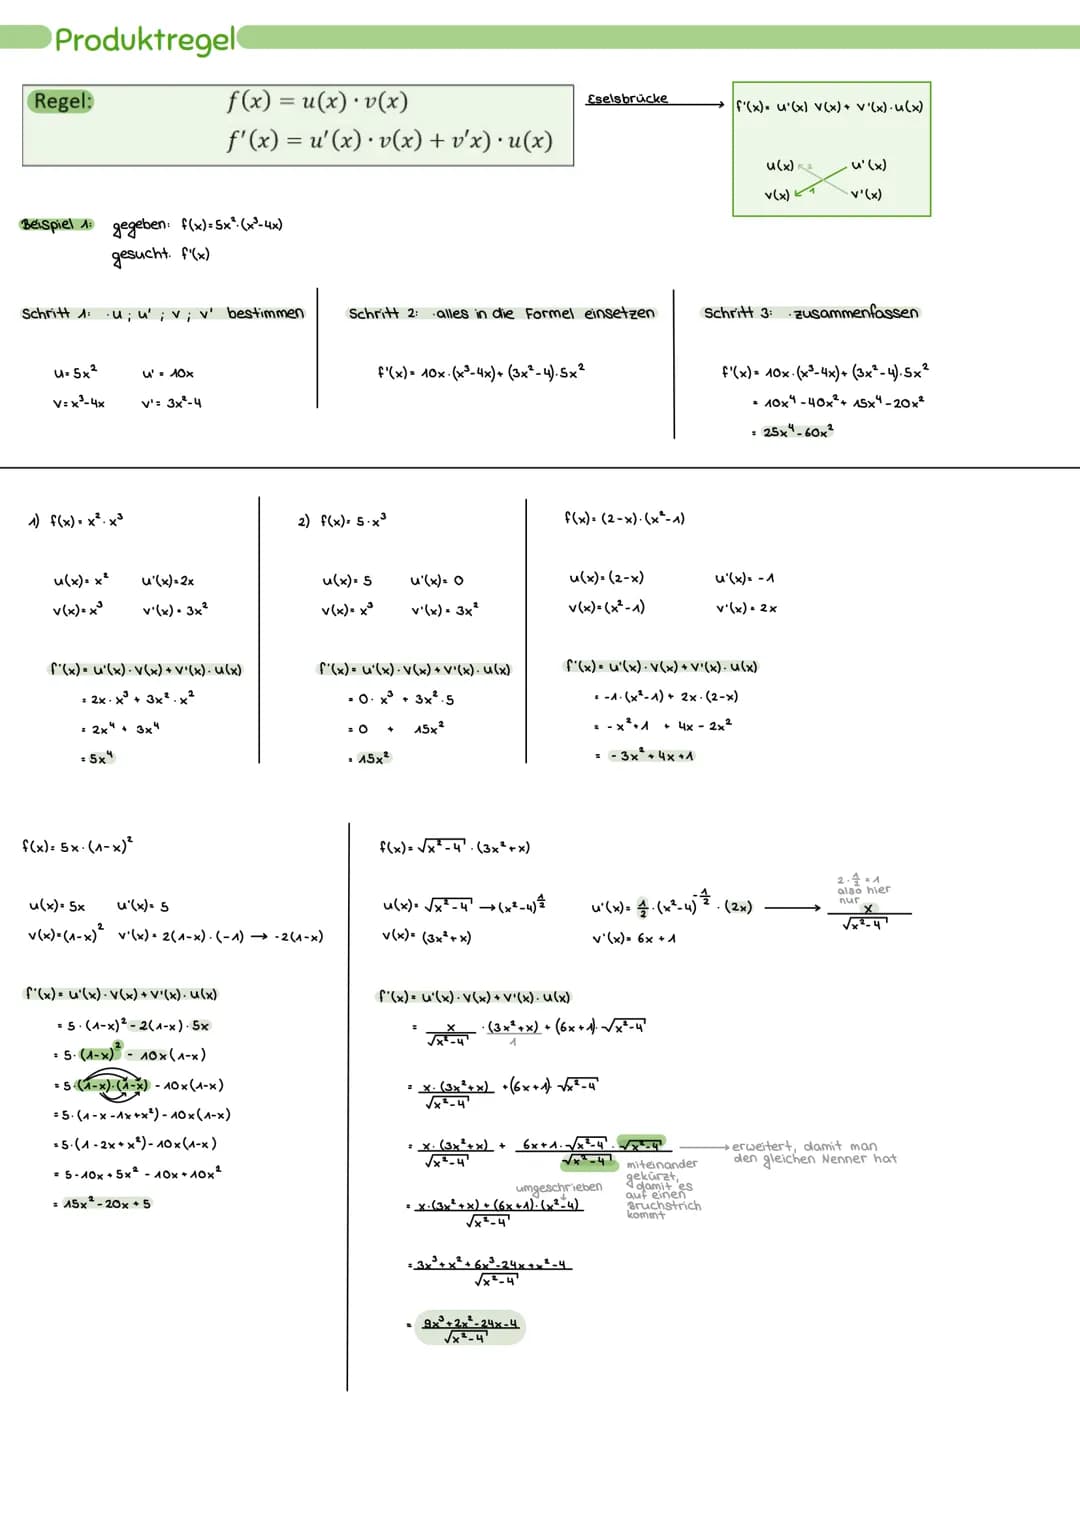 Produktregel
Regel:
f(x) = u(x) · v(x)
f'(x) = u'(x) · v(x) + v'x) · u(x)
Eselsbrücke
f'(x)= u'(x) v(x)+ v'(x)·u(x)
u(x) 2 u'(x)
v(x) 1 v'(x)
Beispiel 1: gegeben: f(x)=5x²·(x³-4x)
gesucht. f'(x)
Schritt 1: ·u; u'; v; v' bestimmen
u= 5x² u' = 10x
v=x³-4x v'= 3x²-4
Schritt 2: ·alles in die Formel einsetzen
f'(x)= 10x·(x³-4x)+ (3x²-4)·5x²
Schritt 3: ·zusammenfassen
f'(x)= 10x·(x³-4x)+ (3x²-4)·5x²
= 10x⁴-40x²+ 15x⁴-20x²
= 25x⁴-60x²
1) f(x)= x²·x³
u(x)= x² u'(x)=2x
v(x)=x³ v'(x)= 3x²
f'(x)= u'(x)·v(x)+v'(x)·u(x)
= 2x·x³ + 3x²·x²
= 2x⁴ + 3x⁴
= 5x⁴
2) f(x)= 5·x³
u(x)= 5 u'(x)= 0
v(x)= x³ v'(x)= 3x²
f'(x)= u'(x)·v(x)+v'(x)·u(x)
= 0· x³ + 3x²·5
= 0 + 15x²
= 15x²
f(x)= (2-x)·(x²-1)
u(x)= (2-x) u'(x)= -1
v(x)=(x²-1) v'(x)= 2x
f'(x)= u'(x)·v(x)+v'(x)·u(x)
= -1·(x²-1)+ 2x·(2-x)
= -x²+1 + 4x - 2x²
= -3x²+4x+1
f(x)= 5x·(1-x)²
u(x)= 5x u'(x)= 5
v(x)=(1-x)² v'(x)= 2(1-x)·(-1) → -2(1-x)
f'(x)= u'(x)·v(x)+v'(x)·u(x)
= 5·(1-x)²-2(1-x)·5x
= 5·(1-x)² - 10x(1-x)
= 5·(1-x)·(1-x) - 10x(1-x)
= 5·(1-x-1x+x²)-10x(1-x)
= 5·(1-2x+x²)-10x(1-x)
= 5-10x+5x² - 10x+10x²
= 15x²-20x+5
f(x)= √x²-4 · (3x²+x)
u(x)= √x²-4 → (x²-4)^½ u'(x)= ½·(x²-4)^-½ · (2x) → x/√x²-4
2·½=1
also hier
nur
v(x)= (3x²+x) v'(x)= 6x+1
f'(x)= u'(x)·v(x)+v'(x)·u(x)
= x/√x²-4 · (3x²+x)/1 + (6x+1)·√x²-4
= x·(3x²+x)/√x²-4 +(6x+1)·√x²-4
= x·(3x²+x)/√x²-4 + 6x+1·√x²-4·√x²-4/√x²-4 → erweitert, damit man
den gleichen Nenner hat
miteinander
gekürzt,
damit es
auf einen
Bruchstrich
kommt
umgeschrieben
= x·(3x²+x)+(6x+1)·(x²-4)/√x²-4
= 3x³+x²+6x³-24x+x²-4/√x²-4
= 9x³+2x²-24x-4/√x²-4